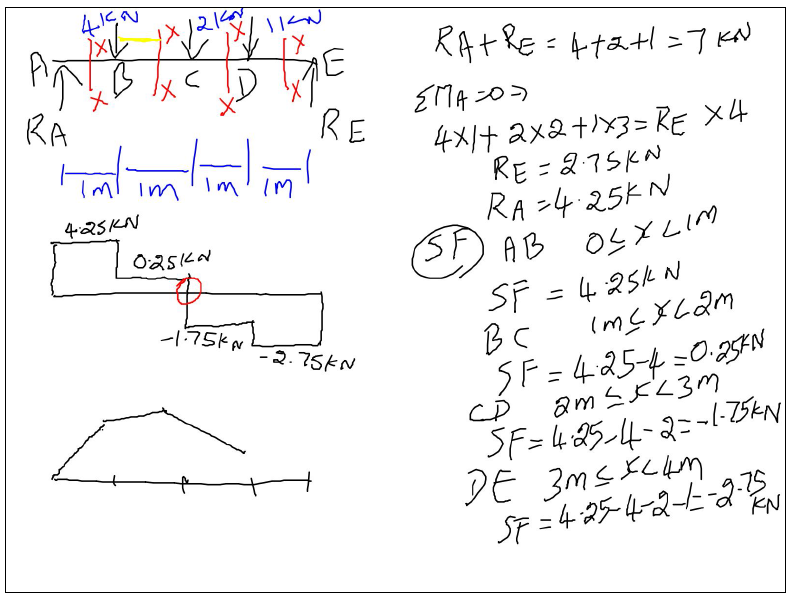 4KN 2KN 11KN
X X X
A B C D E
X X X X
RA RE
1m 1m 1m 1m
4.25KN
0.25KN
-1.75KN
-2.75KN
RA+RE = 4+2+1 = 7 KN
ΣMA=0 ⇒
4×1+ 2×2 +1×3= RE ×4
RE = 2.75KN
RA = 4.25KN
SF AB 0≤x<1m
SF = 4.25KN
BC 1m≤x<2m
SF = 4.25-4 = 0.25KN
CD 2m≤x<3m
SF= 4.25-4-2= -1.75KN
DE 3m≤x<4m
SF = 4.25-4-2-1= -2.75
KN